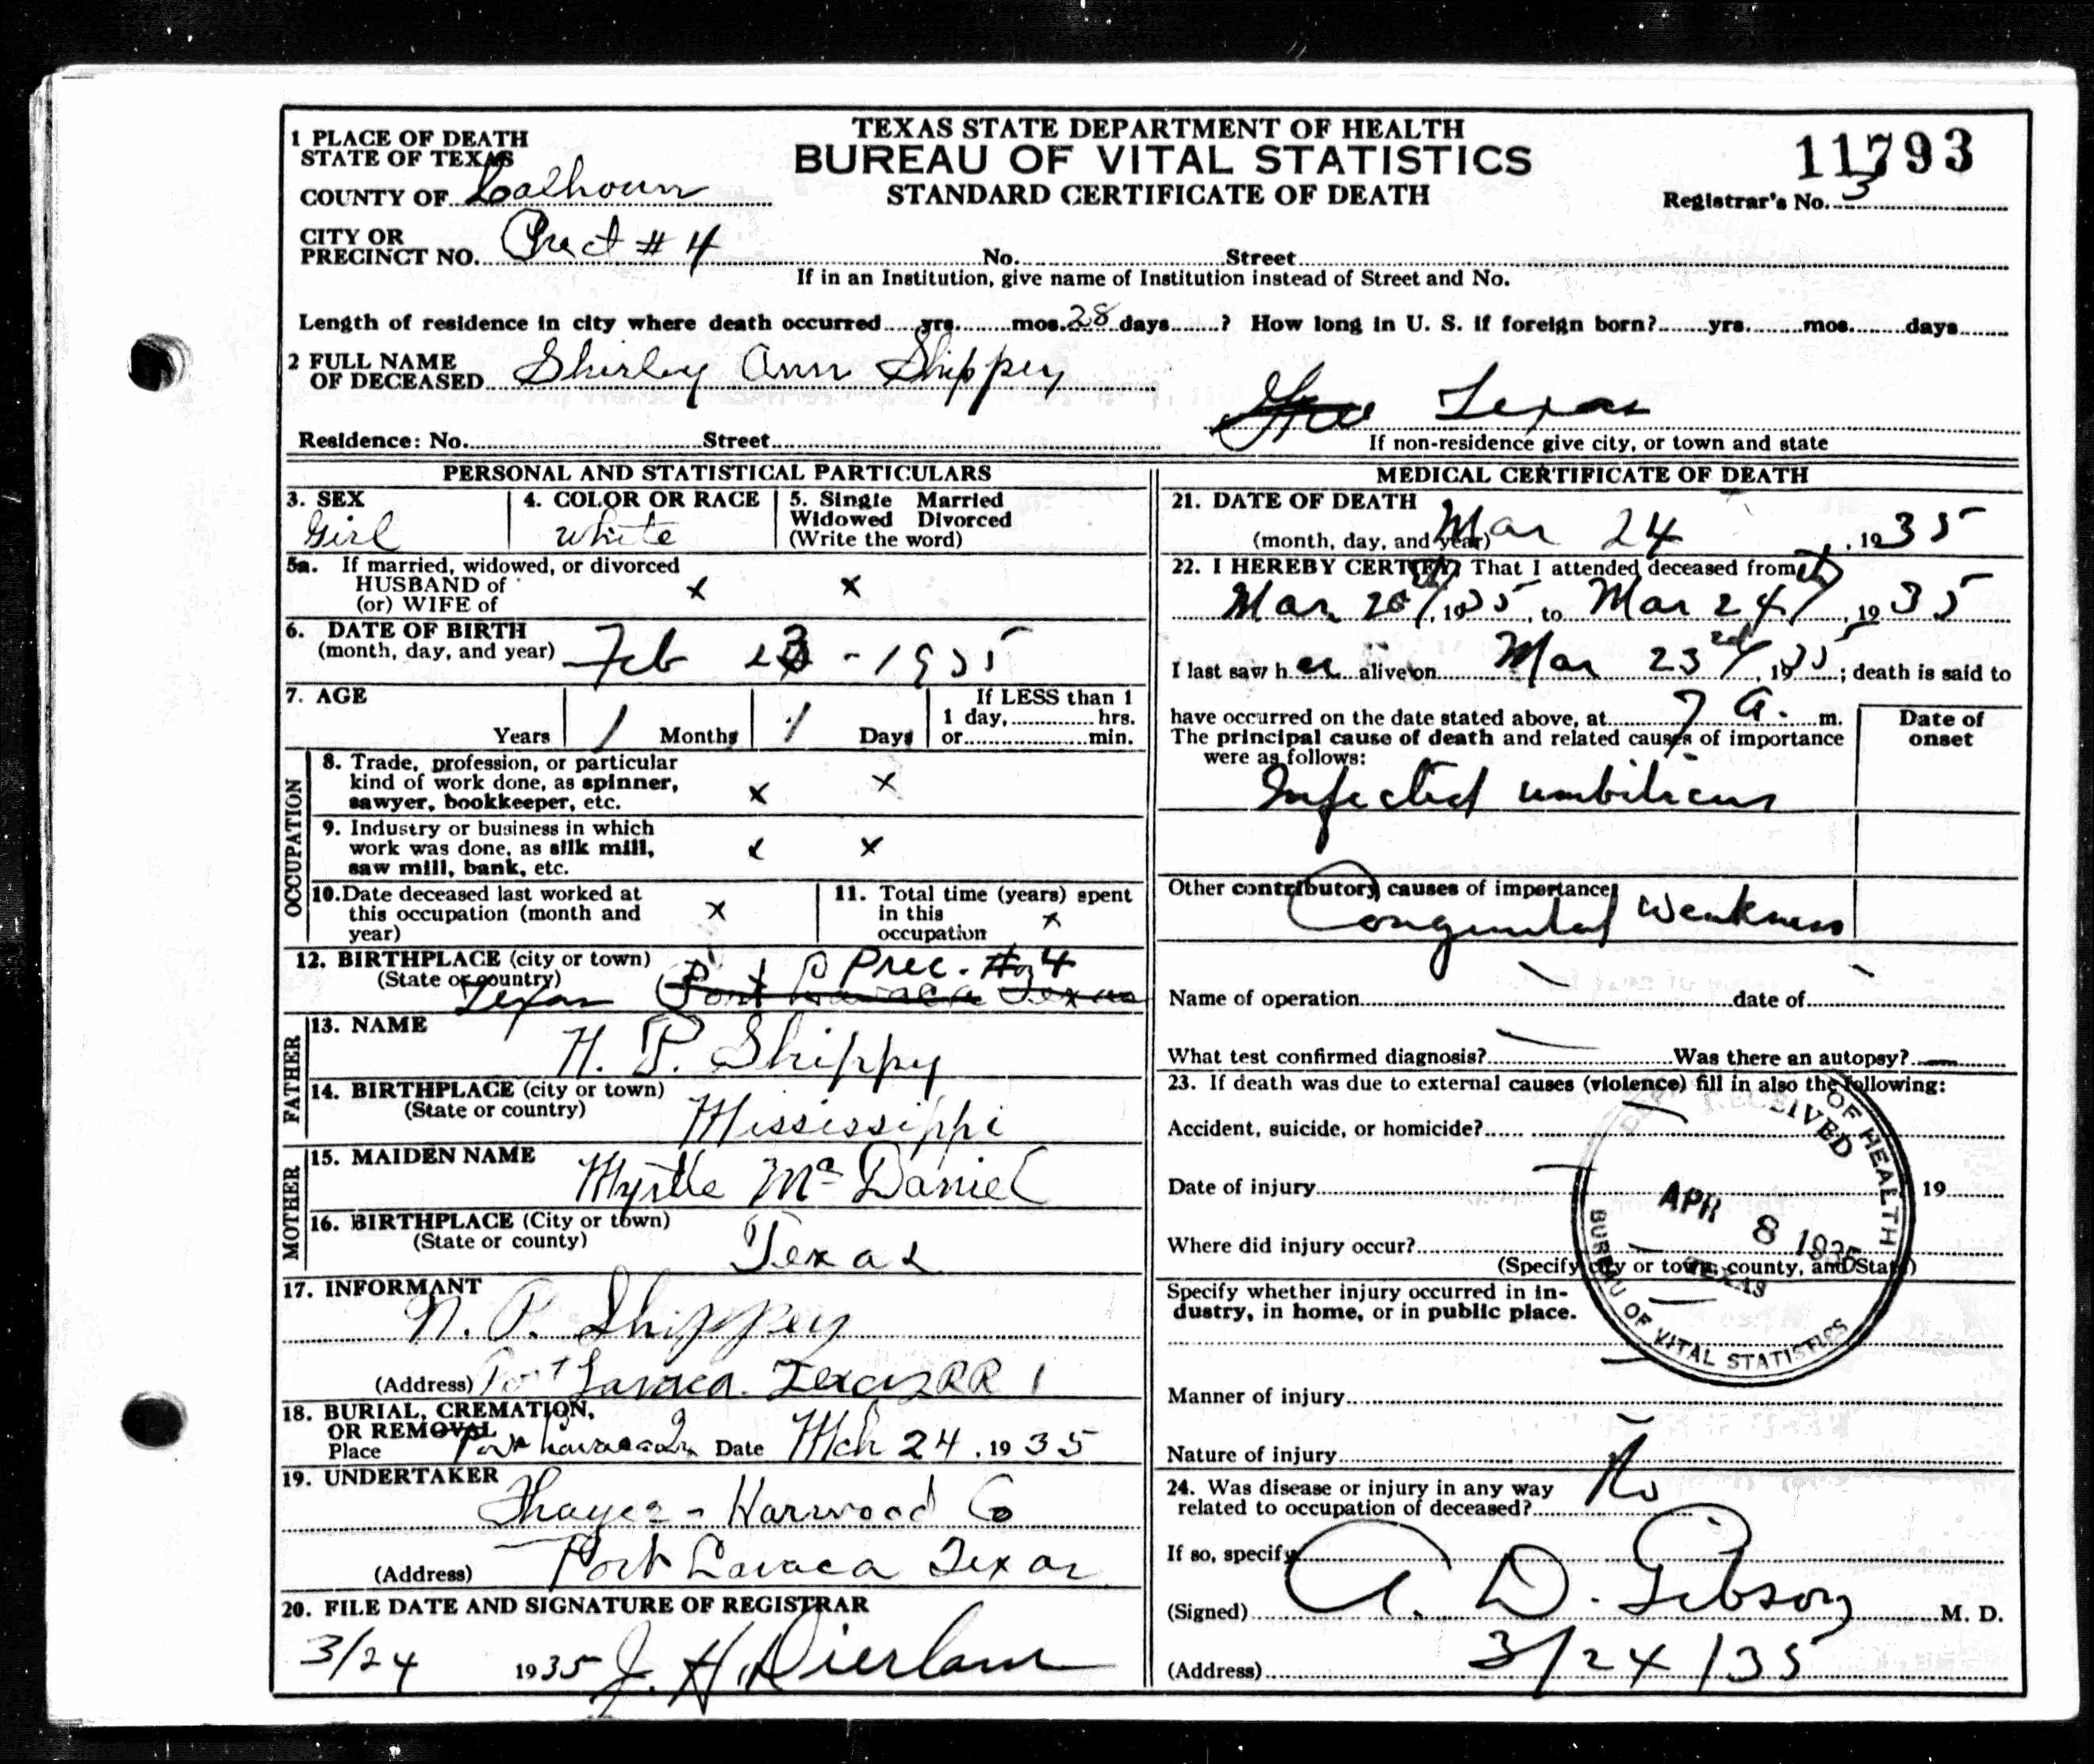 TEXAS STATE DEPARTMENT OF HEALTH
BUREAU OF VITAL STATISTICS
STANDARD CERTIFICATE OF DEATH
11793
Registrar's No. 3
1 PLACE OF DEATH
STATE OF TEXAS
COUNTY OF Calhoun
CITY OR
PRECINCT NO. Prect #4 No. Street
If in an Institution, give name of Institution instead of Street and No.
Length of residence in city where death occurred yrs. mos. 28 days ? How long in U. S. if foreign born? yrs. mos. days
2 FULL NAME
OF DECEASED Shirley Ann Shippey
Texas
Residence: No. Street If non-residence give city, or town and state
PERSONAL AND STATISTICAL PARTICULARS
3. SEX
Girl
4. COLOR OR RACE
White
5. Single Married
Widowed Divorced
(Write the word)
5a. If married, widowed, or divorced
HUSBAND of x x
(or) WIFE of
6. DATE OF BIRTH
(month, day, and year) Feb 23 - 1935
7. AGE
Years 1 Months 1 Days
If LESS than 1
1 day, hrs.
or min.
OCCUPATION
8. Trade, profession, or particular
kind of work done, as spinner, x x
sawyer, bookkeeper, etc.
9. Industry or business in which
work was done, as silk mill, x x
saw mill, bank, etc.
10. Date deceased last worked at
this occupation (month and x
year)
11. Total time (years) spent
in this
occupation x
12. BIRTHPLACE (city or town) Prec. No 4
(State or country)
Texas Port Lavaca Texas
FATHER
13. NAME
H. P. Shippy
14. BIRTHPLACE (city or town)
(State or country) Mississippi
MOTHER
15. MAIDEN NAME
Myrtle Mc Daniel
16. BIRTHPLACE (City or town)
(State or county) Texas
17. INFORMANT
N. P. Shippey
(Address) Port Lavaca. Texas RR 1
18. BURIAL, CREMATION,
OR REMOVAL
Place Port Lavaca Date Mch 24, 1935
19. UNDERTAKER
Thayer - Harwood Co
(Address) Port Lavaca Texas
20. FILE DATE AND SIGNATURE OF REGISTRAR
3/24 1935 J. H. Dierlam
MEDICAL CERTIFICATE OF DEATH
21. DATE OF DEATH
(month, day, and year) Mar 24, 1935
22. I HEREBY CERTIFY, That I attended deceased from
Mar 20th, 1935, to Mar 24th, 1935
I last saw her alive on Mar 23rd, 1935; death is said to
have occurred on the date stated above, at 7 A. m.
The principal cause of death and related causes of importance
were as follows:
Date of
onset
Infected umbilicus
Other contributory causes of importance:
Congenital Weakness
Name of operation date of
What test confirmed diagnosis? Was there an autopsy?
23. If death was due to external causes (violence) fill in also the following:
Accident, suicide, or homicide?
Date of injury 19
Where did injury occur?
(Specify city or town, county, and State)
Specify whether injury occurred in in-
dustry, in home, or in public place.
Manner of injury
Nature of injury
24. Was disease or injury in any way
related to occupation of deceased? No
If so, specify
(Signed) A. D. Gibson M. D.
(Address) 3/24/35
RECEIVED
OF HEALTH
APR 8 1935
TEXAS
BUREAU OF VITAL STATISTICS